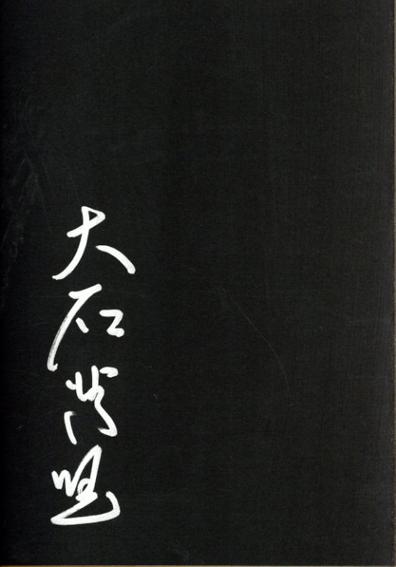 大石芳野